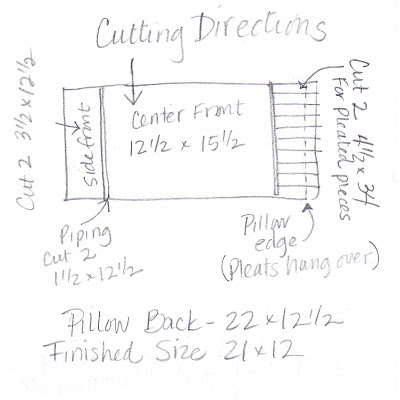 Cutting Directions
Cut 2 3½ x 12½
Side front
Center Front
12½ x 15½
Cut 2 4½ x 34
For Pleated pieces
Piping
Cut 2
1½ x 12½
Pillow
edge
(Pleats hang over)
Pillow Back - 22 x 12½
Finished Size 21 x 12